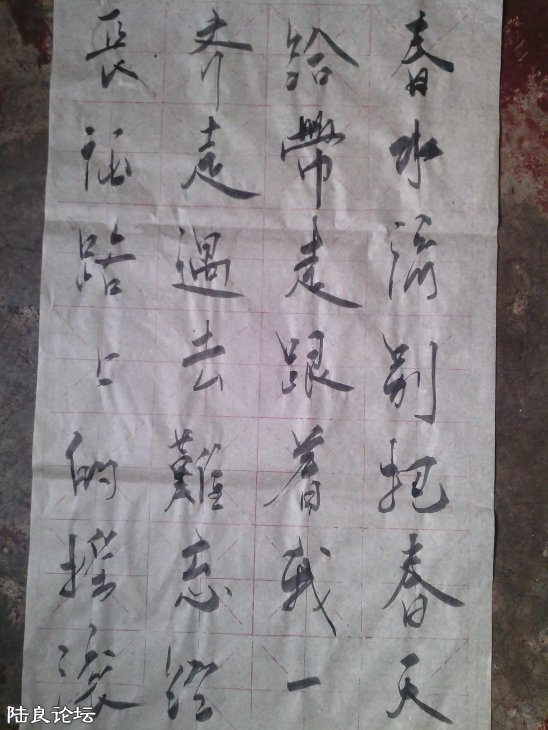 春水流别把春天
给帶走跟着我一
齐走過去難忘經
路上的摇滚
陆良论坛